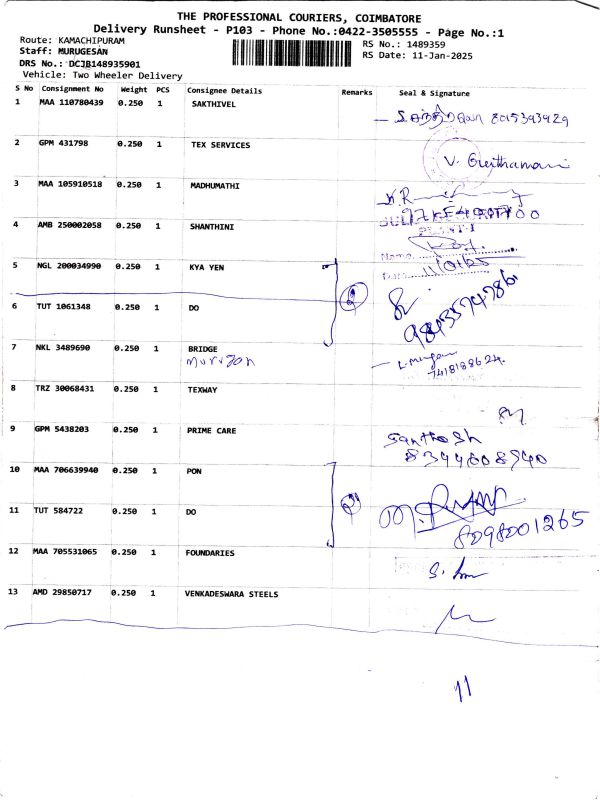 THE PROFESSIONAL COURIERS, COIMBATORE
Delivery Runsheet - P103 - Phone No.:0422-3505555 - Page No.:1
Route: KAMACHIPURAM
RS No.: 1489359
Staff: MURUGESAN
RS Date: 11-Jan-2025
DRS No.: DCJB148935901
Vehicle: Two Wheeler Delivery
S No Consignment No Weight PCS Consignee Details Remarks Seal & Signature
1 MAA 110780439 0.250 1 SAKTHIVEL 8015393929
2 GPM 431798 0.250 1 TEX SERVICES
V.
3 MAA 105910518 0.250 1 MADHUMATHI
4 AMB 250002058 0.250 1 SHANTHINI
PLANT-I
Name
5 NGL 200034990 0.250 1 KYA YEN
Date 11/01/25
6 TUT 1061348 0.250 1 DO
9843574786
7 NKL 3489690 0.250 1 BRIDGE
murugan L. Murugan
7418188624.
8 TRZ 30068431 0.250 1 TEXWAY
9 GPM 5438203 0.250 1 PRIME CARE Santhosh
8344608940
10 MAA 706639940 0.250 1 PON
11 TUT 584722 0.250 1 DO
8098001265
12 MAA 705531065 0.250 1 FOUNDARIES
13 AMD 29850717 0.250 1 VENKADESWARA STEELS
11